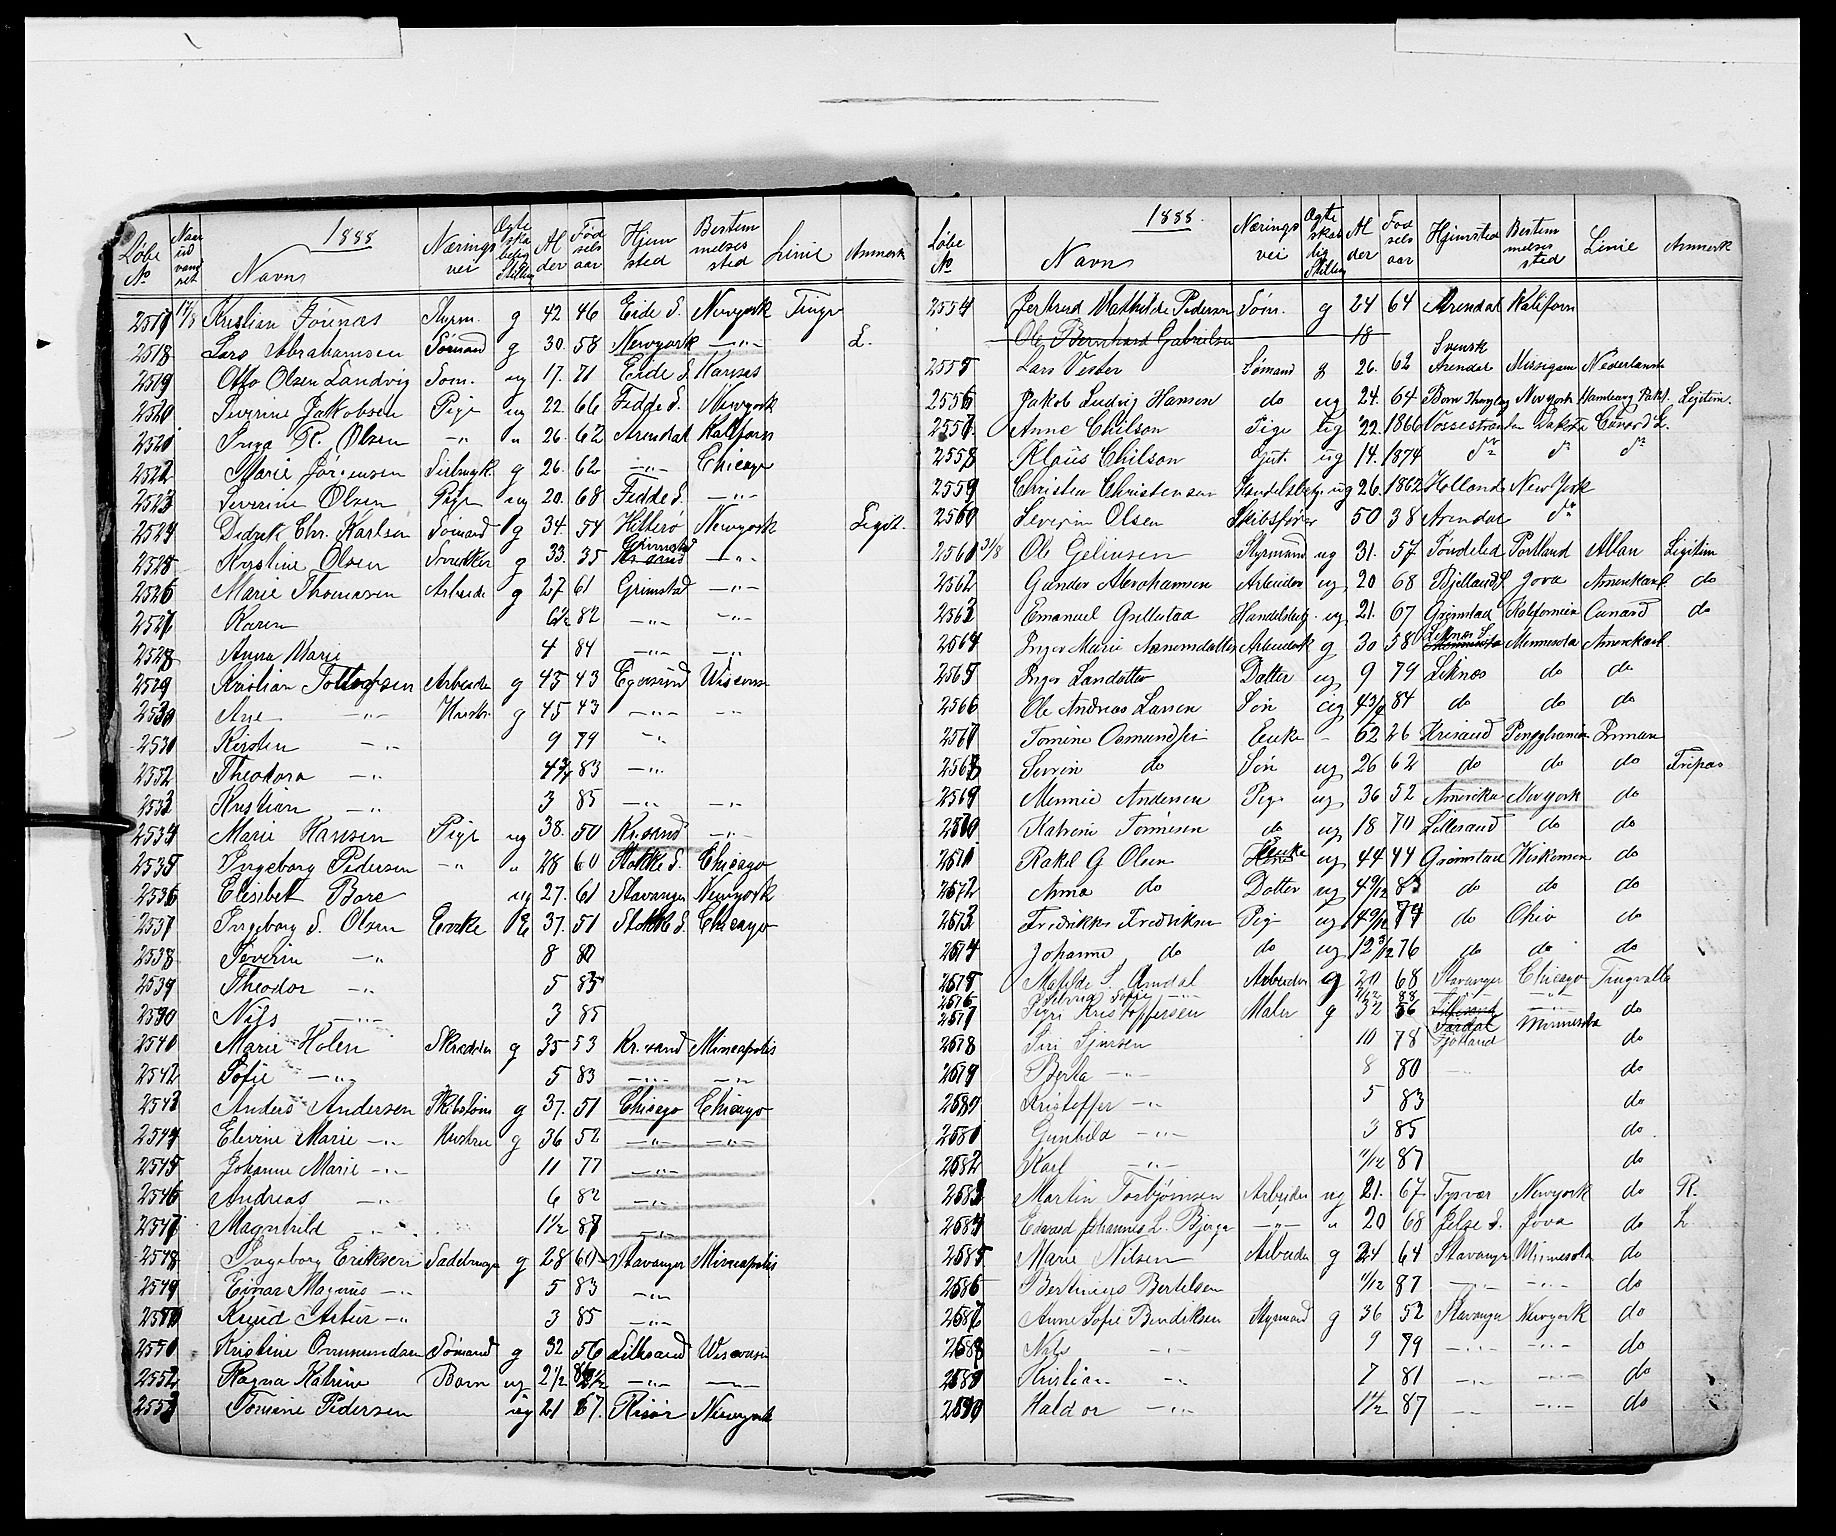 1888
Løbe No Naar udvandret Navn Næringsvei Ægteskabelig Stilling Alder Fødselsaar Hjemsted Bestemmelsessted Linie Anmerk
2517 17/8 Kristian Jørenæs Styrm. g 42 46 Eide S. Newyork Tingv
2518 Lars Abrahamsen Sømand g 30. 58 Newyork —"— L.
2519 Otto Olsen Landvig Søm. ug 17. 71 Eide S. Kansas
2520 Severine Jakobsen Pige ug 22. 66 Fedde S. Newyork
2521 Inga R. Olsen —"— " 26. 62 Arendal Kaliforn
2522 Marie Jørgensen g 26. 62 —"— Chicago
2523 Severine Olsen Pige ug 20. 68 Fedde S. —"—
2524 Didrik Chr. Karlsen Sømand g 34. 54 Hitterø Newyork Legit.
2525 Kristine Olsen Snedker g 33. 35 Grimstad —"—
2526 Marie Thomasen Arbeide g 27 61 Grimstad —"—
2527 Karen 6½ 82 —"— —"—
2528 Anna Marie 4 84 —"— —"—
2529 Kristian Tollefsen Arbeider g 45 43 Egersund Wisconsin
2530 Ane —"— Hustr. g 45 43 —"— —"—
2531 Kirsten —"— 9 79 —"—
2532 Theodora —"— 4¾ 83 —"—
2533 Kristian —"— 3 85 —"— —"—
2534 Marie Hansen Pige ug 38. 50 Kr.sand —"—
2535 Ingeborg Pedersen —"— " 28 60 Stokke S. Chicago
2536 Elisibet Bore ug 27. 61 Stavanger Newyork
2537 Ingeborg S. Olsen Enke E 37. 51 Stokke S. Chicago
2538 Severin —"— 8 80
2539 Theodor —"— 5 83
2540 Nils —"— 3 85
2541 Marie Holen Skrædder g 35 53 Kr.sand Mineapolis
2542 Sofie —"— 5 83 —"— —"—
2543 Anders Andersen Skibstøm g 37. 51 Chicago Chicago
2544 Elevine Marie —"— Hustru g 36 52 —"— —"—
2545 Johanne Marie —"— 11 77 —"—
2546 Andreas —"— 6 82 —"—
2547 Magnhild —"— 1½ 87 —"—
2548 Ingeborg Eriksen Sadelmager g 28 60 Stavanger Mineapolis
2549 Einar Magnus —"— 5 83 —"—
2550 Knud Artur —"— 3 85 —"—
2551 Kristine Ommundsen Sømand g 32 56 Lillesand Wisconsin
2552 Ragna Katrine Barn ug 2½ —"— —"—
2553 Tomine Pedersen ug 21 67. Risør Newyork
1888.
Løbe No Navn Næringsvei Ægteskabelig Stilling Alder Fødselsaar Hjemsted Bestemmelsessted Linie Anmerk
2554 Jertrud Mathilde Pedersen Søm. g 24 64 Arendal Kaliforn
Ole Bernhard Gabrielsen 18
2555 Lars Vester Sømand g 26. 62 Svensk Arendal Missigam Nederlansk
2556 Jakob Ludvig Hansen do ug 24. 64 Newyork Hamburg Pakt. Legitim.
2557. Anne Chilson Pige ug 22. 1866 Vossestranden Dakota Cunard L.
2558 Klaus Chilson Gut. ug 14. 1874 do do do
2559 Christen Christensen Handelsbetj. ug 26. 1862 Holland New York
2560 Severin Olsen Skibsfører 50 38 Arendal do
2561 31/8 Ole Gelinsen Styrmand ug 31. 57 Søndeled Portland Allan Legitim
2562 Gunder Abrahamsen Arbeider ug 20 68 Bjelland S. Jova Amerikansk do
2563 Emanuel Grillestad Handelsbetj. ug 21. 67 Grimstad Kalifornien Cunard do
2564 Inger Marie Asmundsdatter Arbeidsk g 30 58 Leknes S. Minnesota Amerikansk.
2565 Inger Larsdatter Datter ug 9 79 Leknes do do
2566 Ole Andreas Larsen Søn ug 4¾ 84 do do do
2567 Tomine Osmundsen Enke - 62 26 Krisand Pensylvanien Inman
2568 Severin do Søn ug 26 62 do do do Fripas
2569 Minnie Andersen Pige ug 36 52 Amerika Newyork do
2570 Katrine Tønnesen do ug 18 70 Lillesand do do
2571 Rakel G Olsen Enke ug 44 44 Grimstad Wiskonsin do
2572 Anna do Datter ug 4 9/12 83 do do do
2573 Fredrikke Fredriksen Pige ug 14 9/12 74 do Ohio do
2574 Johanne do do ug 12 3/12 76 do do do
2575 Matilde S. Arndal Arbeider g 20 68 Stavanger Chicago Tingvalla
2576 Selvia Sofie —"— 7/12 88 —"— —"—
2577 Kristoffersen Maler g 32 56 do
2578 Siri Sjursen 10 78 Fjotland Minnesota do
2579 Berta —"— 8 80 do
2580 Kristoffer —"— 5 83 do
2581 Gunhild —"— 3 85 do
2582 Karl —"— 11/12 87 do
2583 Martin Torbjørnsen Arbeider ug 21. 67 Tysvær Newyork do R.
2584 Edvard Johannes L. Bjerga —"— " 20 68 Jelse S. Jova do L
2585 Marie Nilsen Arbeider g 24 64 Stavanger Minnesota do
2586 Bertinius Bertelsen 11/12 87 —"— —"— do
2587 Anne Sofie Bendiksen Styrmand g 36 52 Stavanger Newyork do
2588 Nils —"— 9 79 —"— —"— do
2589 Kristian —"— 7 81 —"— —"— do
2590 Haldor —"— 1½ 87 —"— —"— do